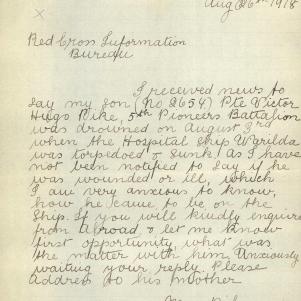 Aug 26th 1918
Red Cross Information
Bureau
I received news to
say my son (No 2654) Pte Victor
Hugo Pike, 5th Pioneers Battalion
was drowned on August 3rd
when the Hospital Ship Warilda
was torpedoed & sunk. As I have
not been notified to say if he
was wounded or ill, which
I am very anxious to know,
how he came to be on the
Ship. If you will kindly enquire
from abroad & let me know
first opportunity, what was
the matter with him. Anxiously
waiting your reply. Please
address to his mother